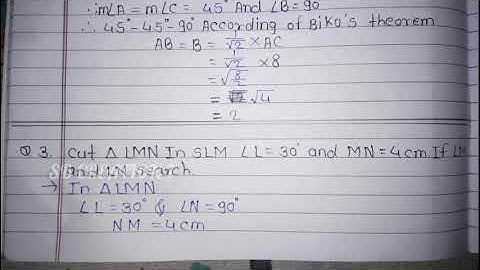 ∴ m∠A = m∠C = 45° And ∠B = 90
∴ 45°-45°-90° According of Biko's theorem
AB = B = 1/√2 × AC
= 1/√2 × 8
= √8/2
= √4
= 2
Q 3. Cut △ LMN In SLM ∠L = 30° and MN = 4cm If LM
and LN search.
→ In △LMN
∠L = 30° & ∠N = 90°
NM = 4cm